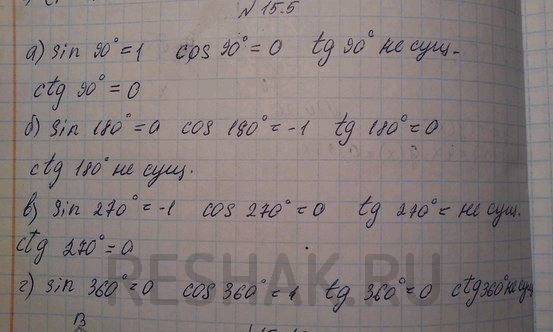 № 15.5
а) sin 90° = 1 cos 90° = 0 tg 90° не сущ.
ctg 90° = 0
б) sin 180° = 0 cos 180° = -1 tg 180° = 0
ctg 180° не сущ.
в) sin 270° = -1 cos 270° = 0 tg 270° = не сущ.
ctg 270° = 0
г) sin 360° = 0 cos 360° = 1 tg 360° = 0 ctg 360° не сущ
RESHAK.RU